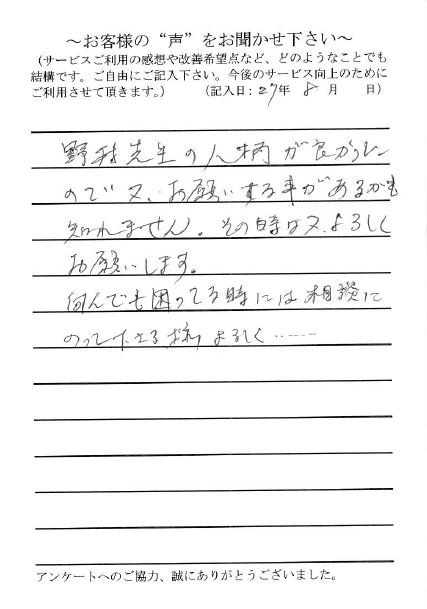 ～お客様の“声”をお聞かせ下さい～
(サービスご利用の感想や改善希望点など、どのようなことでも
結構です。ご自由にご記入下さい。今後のサービス向上のために
ご利用させて頂きます。) (記入日：27年 8 月 日)
野村先生の人柄が良かった
ので又、お願いする事があるかも
知れません。その時は又、よろしく
お願いします。
何んでも困ってる時には相談に
のって下さる様 よろしく……
アンケートへのご協力、誠にありがとうございました。